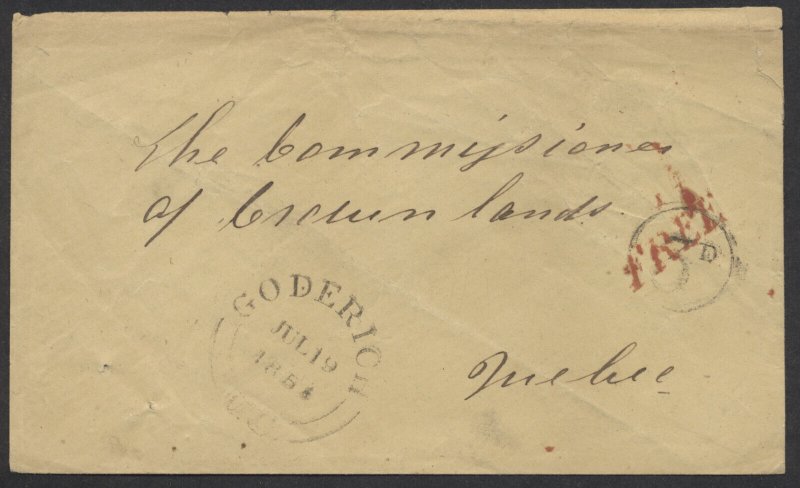 The Commissioner
of Crown lands
FREE
D
GODERICH
JUL 19
1854
Quebec